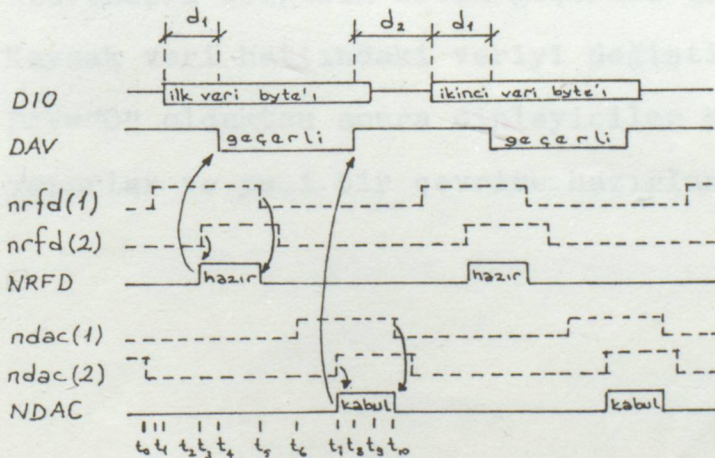 d₁ d₂ d₁
DIO ilk veri byte'ı ikinci veri byte'ı
DAV geçerli geçerli
nrfd(1)
nrfd(2)
NRFD hazır hazır
ndac(1)
ndac(2)
NDAC kabul kabul
t₀ t₁ t₂ t₃ t₄ t₅ t₆ t₇ t₈ t₉ t₁₀